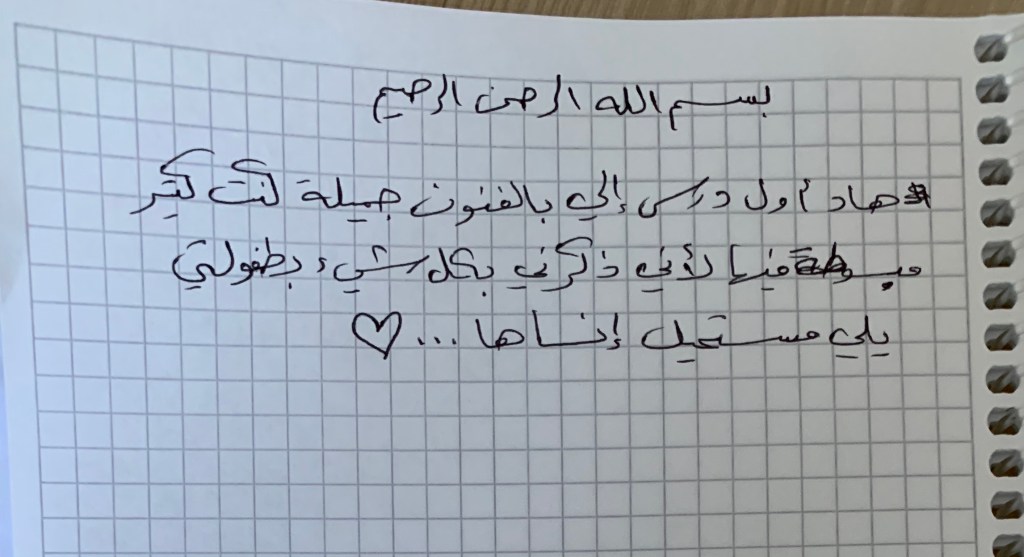 بسم الله الرحمن الرحيم
هاد أول درس إلي بالفنون جميلة كنت كتير
مبسوطة فيها لأني ذكرني بكل شيء بطفولتي
يلي مستحيل إنساها ... ♡